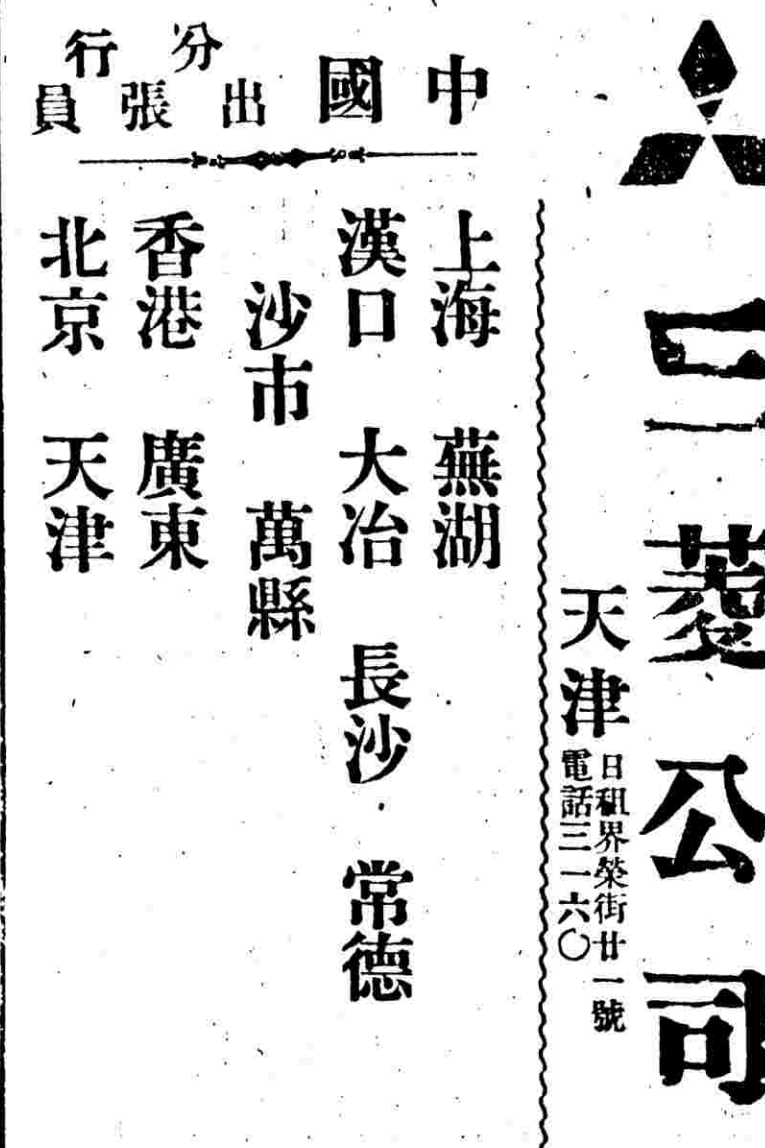 三菱公司
天津
日租界榮街廿一號
電話三一六〇
中國分行
出張員
上海 蕪湖
漢口 大冶 長沙 常德
沙市 萬縣
香港 廣東
北京 天津